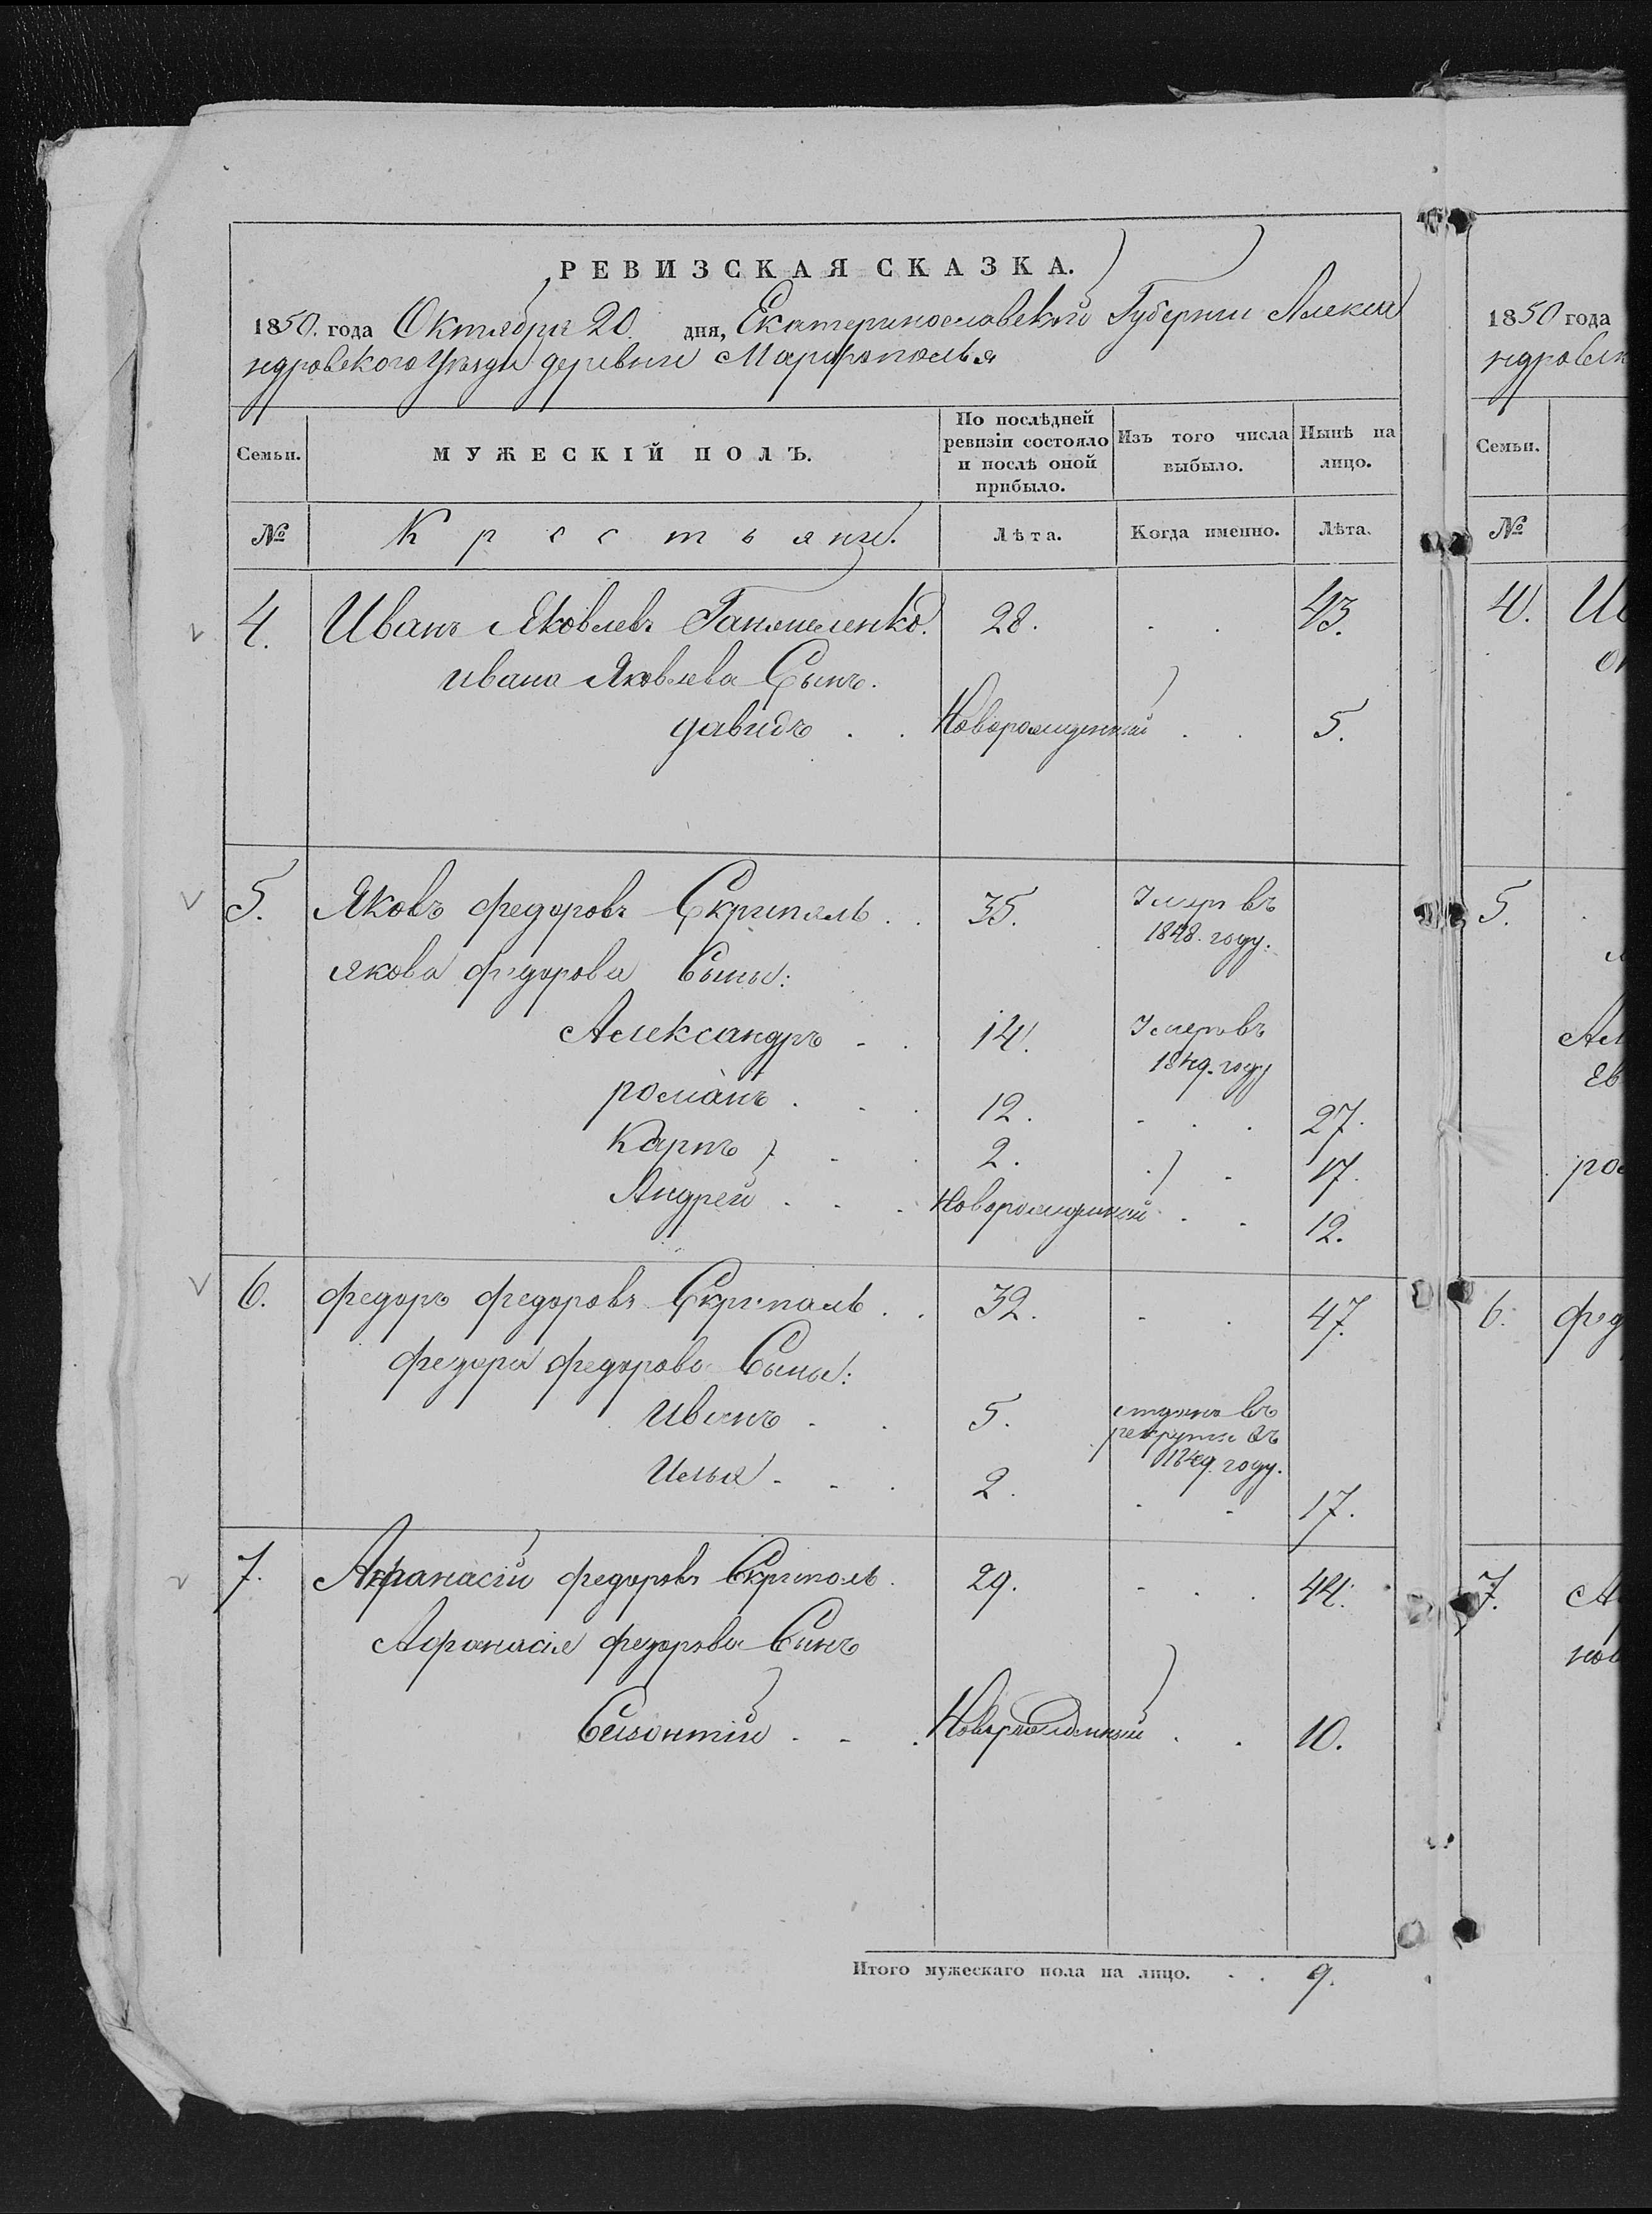 РЕВИЗСКАЯ СКАЗКА.
1850. года Октября 20. дня, Екатеринославской Губернии Алекса
ндровского Уезда деревни Марфополья
Семьи. МУЖЕСКІЙ ПОЛЪ. По послѣдней ревизіи состояло и послѣ оной прибыло. Изъ того числа выбыло. Нынѣ на лицо.
№ Крестьяне. Лѣта. Когда именно. Лѣта.
4. Иванъ Яковлевъ 28. . . 43.
ивана Яковлева Сынъ.
давидъ . . Новорожденный . . 5.
5. Яковъ федоровъ Скрипаль . . 35. Умеръ въ
1848. году.
якова федорова Сыны:
Александръ - . 14. Умеръ въ
1849. году
романъ . - . 12. - . . 27.
Карпъ . - . 2. . - 17.
Андрей . - . Новорожденный . - 12.
6. федоръ федоровъ Скрипаль . . 32. - . 47.
федора федорова Сыны:
иванъ - . 5. отданъ въ
рекруты въ
1849. году.
Илья - - . 2. - - 17.
7. Афанасій федоровъ Скрипаль. 29. - . . 44.
Афанасія федорова Сынъ
Созонтій . - . Новорожденный . . 10.
Итого мужескаго пола на лицо. . . 9.
1850 года
ндровск
Семьи.
№
4. Ив
5.
Ал
Ев
ром
6. фед
7. Аф